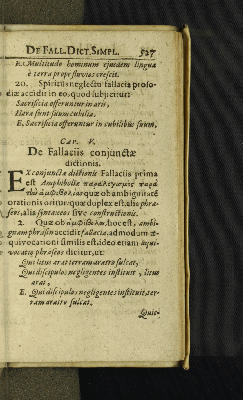 DE FALL. DICT. SIMPL. 527
E. Multitudo hominum ejusdem linguæ
è terra prope fluvios crescit.
20. Spiritus neglectu fallacia proso-
diæ accidit in eo, quod subjicitur:
Sacrificia offeruntur in aris,
Haræ sunt suum cubilia.
E. Sacrificia offeruntur in cubilibus suum.
CAP. V.
De Fallaciis conjunctæ
dictionis.
EX conjunctæ dictionis Fallaciis prima
est Amphibolia
orationis oritur: quæ duplex est: alia phra-
seos, alia syntaxeos sive constructionis.
2. Quæ ob hoc est, ambi-
guam phrasin accidit fallacia, admodum æ-
quivocationi similis est: ideo etiam æqui-
vocatio phraseos dicitur, ut:
Qui litus arat terram aratro sulcat,
Qui discipulos negligentes instituit, litus
arat,
E. Qui discipulos negligentes instituit, ter-
ram aratro sulcat.
Quic-